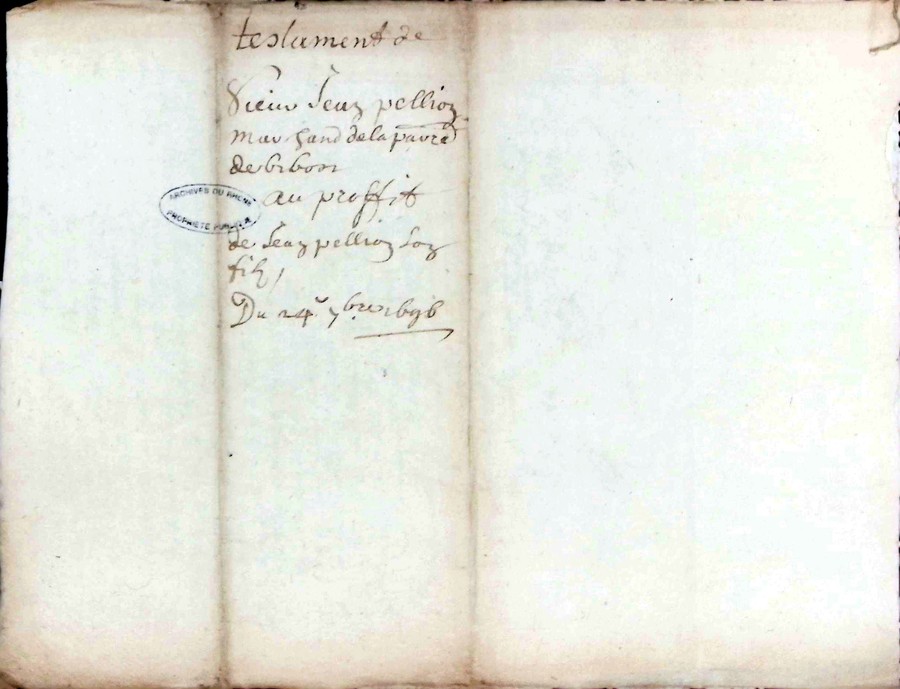 testament de
Sieur Jean pellion
marchand de la parr d
de bibon
au proffit
de Jean pellion son
filz
Du 24e 7bre 1696
ARCHIVES DU RHÔNE
PROPRIÉTÉ PUBLIQUE